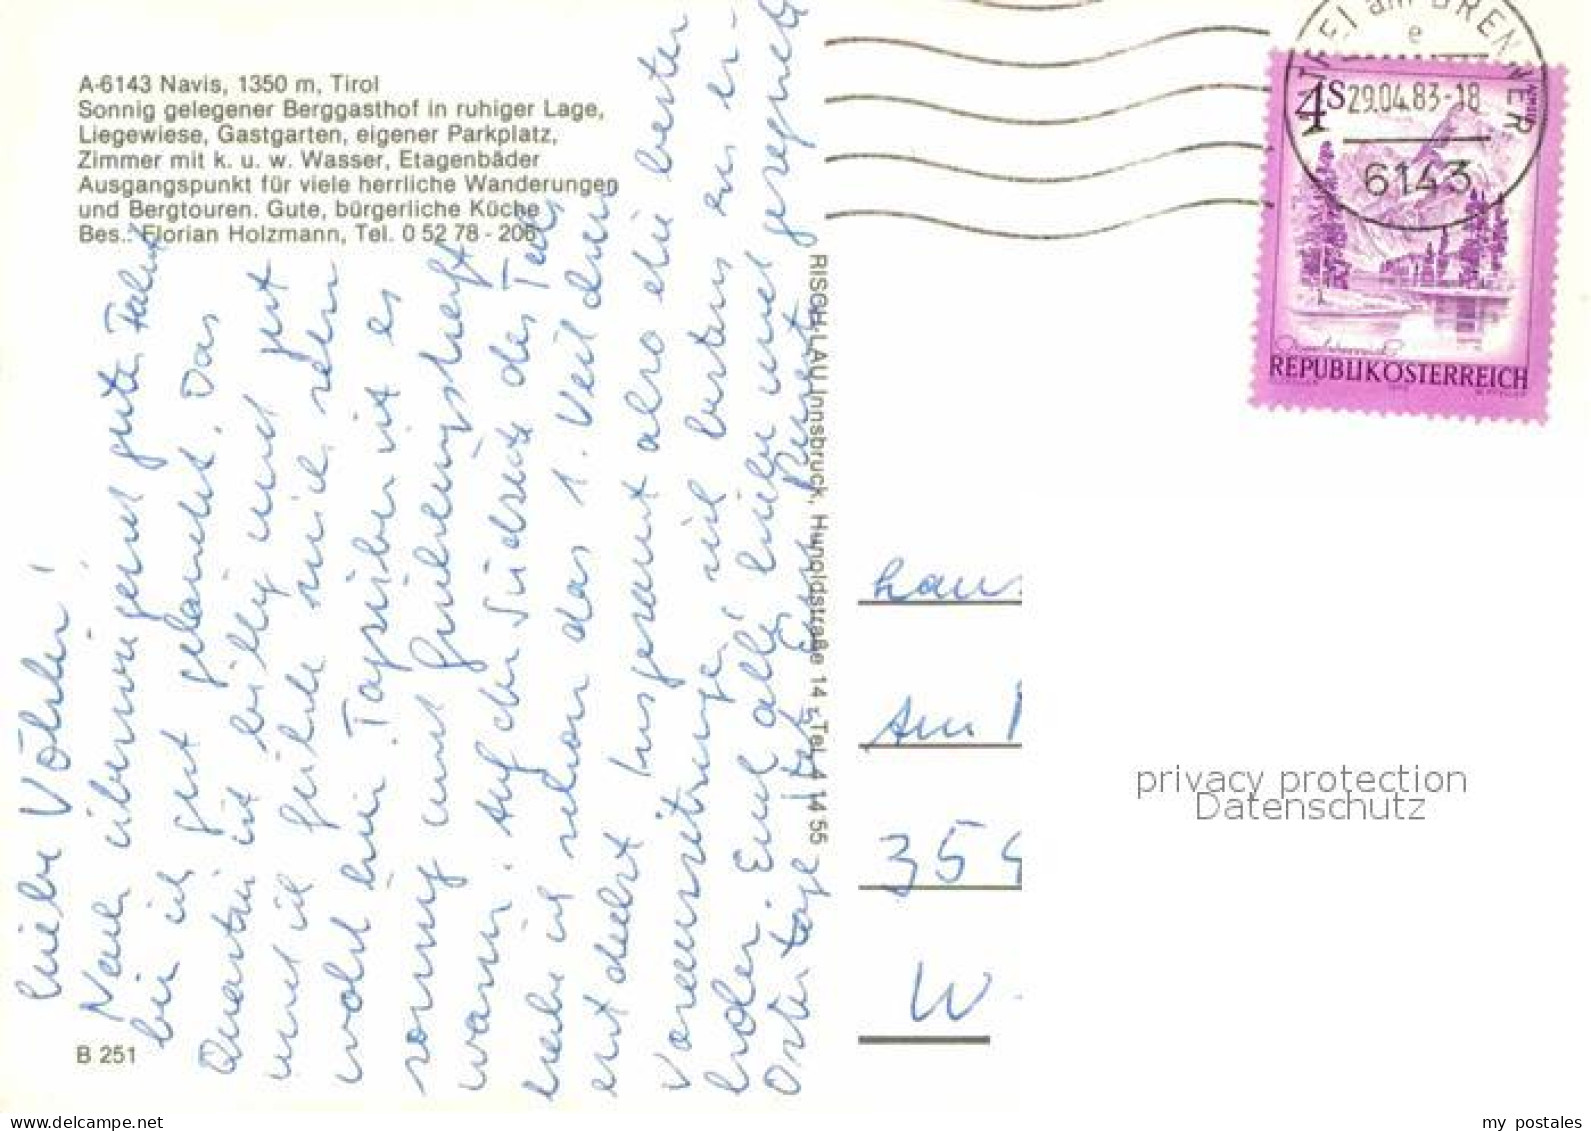 A-6143 Navis, 1350 m, Tirol
Sonnig gelegener Berggasthof in ruhiger Lage,
Liegewiese, Gastgarten, eigener Parkplatz,
Zimmer mit k. u. w. Wasser, Etagenbäder
Ausgangspunkt für viele herrliche Wanderungen
und Bergtouren. Gute, bürgerliche Küche
Bes.: Florian Holzmann, Tel. 0 52 78 - 206
Liebe
Nach übermorgend gute Fahrt
bin ich gut gelandet. Das
Quartier ist billig und gut
und ich fühle mich sehr
wohl hier. Tagsüber ist es
sonnig und frühlingshaft
warm. Auf der Südseite des Tals
habe ich schon das 1. Veilchen
entdeckt. Insgesamt also die besten
Voraussetzungen, sich bestens zu er-
holen. Euch alles Liebe und gesegnete
Ostertage
B 251
RISCH-LAU Innsbruck, Hunoldstraße 14 - Tel. 4 14 55
MATREI am BRENNER
e
29.04.83-18
6143
4S
REPUBLIK ÖSTERREICH
Am
35
W.
privacy protection
Datenschutz
my postales